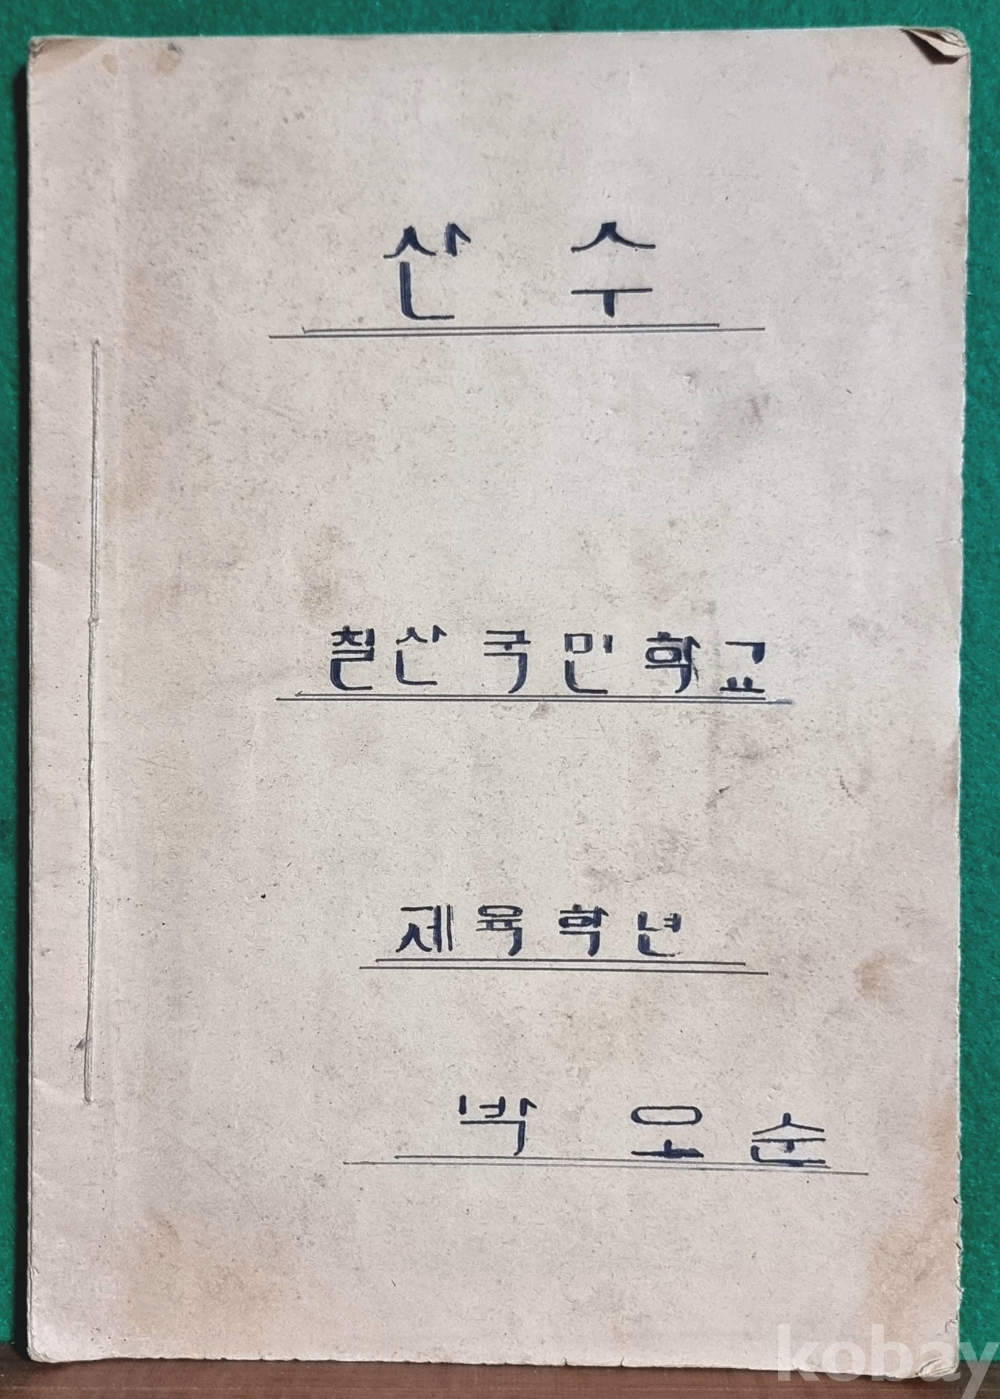 산 수
칠산 국민학교
제육학년
박 오순
kobay